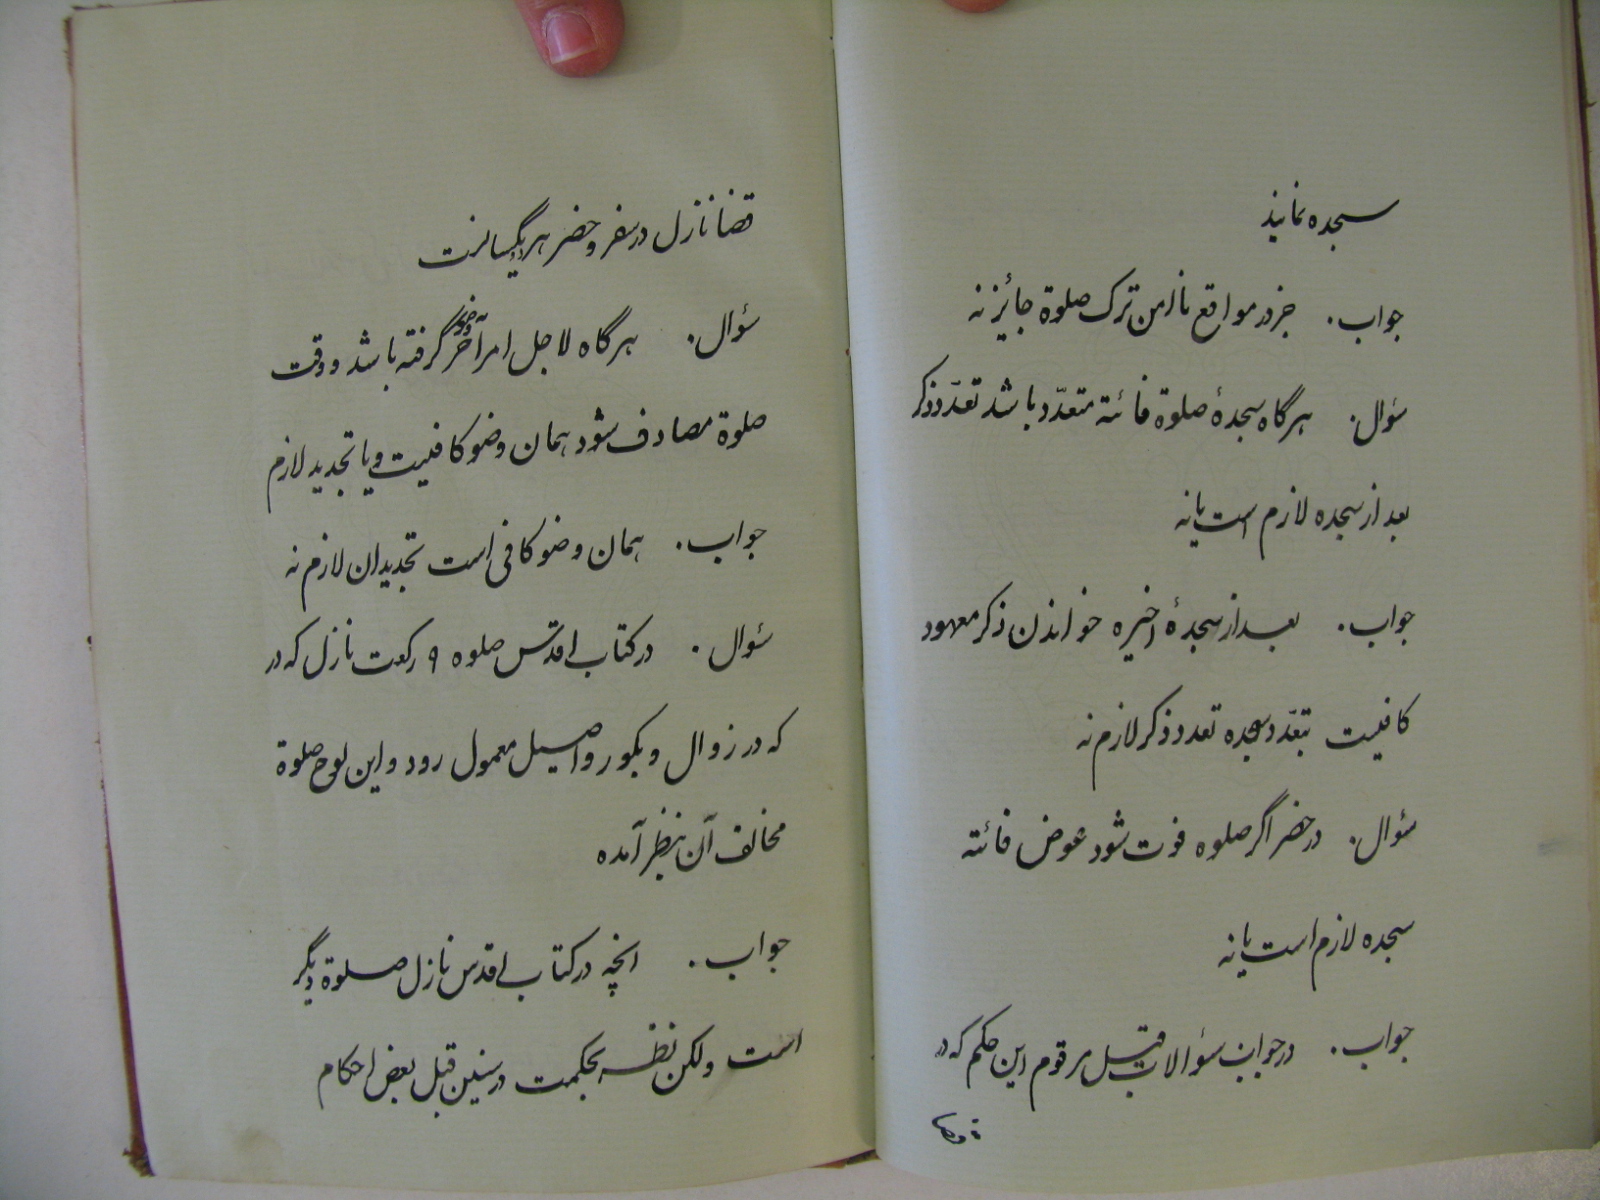 سجده نمایند
جواب. جز در مواقع ناامن ترک صلوة جائز نه
سؤال. هرگاه سجدهٔ صلوة فائته متعدّد باشد تعدّد ذکر
بعد از سجده لازم است یا نه
جواب. بعد از سجدهٔ اخیره خواندن ذکر معهود
کافیست بتعدّد سجده تعدد ذکر لازم نه
سؤال. در حضر اگر صلوه فوت شود عوض فائته
سجده لازم است یا نه
جواب. در جواب سؤالات قبل مرقوم این حکم که در
قضا نازل در سفر و حضر هر دو یکسانست
سؤال. هرگاه لاجل امر آخر وضو گرفته باشد و وقت
صلوة مصادف شود همان وضو کافیست و یا تجدید لازم
جواب. همان وضو کافی است تجدید ان لازم نه
سؤال. در کتاب اقدس صلوه ۹ رکعت نازل که در
که در زوال و بکور و اصیل معمول رود و این لوح صلوة
مخالف آن بنظر آمده
جواب. انچه در کتاب اقدس نازل صلوة دیگر
است ولکن نظر بحکمت در سنین قبل بعض احکام